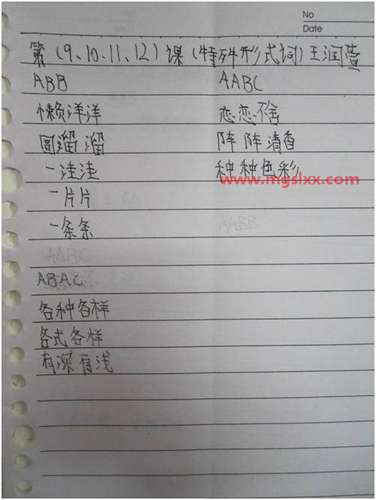 No
Date
第(9、10、11、12)课(特殊形式词)王润萱
ABB AABC
懒洋洋 恋恋不舍
圆溜溜 阵阵清香
一洼洼 种种色彩
www.mgslxx.com
一片片
一条条
ABAC
各种各样
各式各样
有深有浅